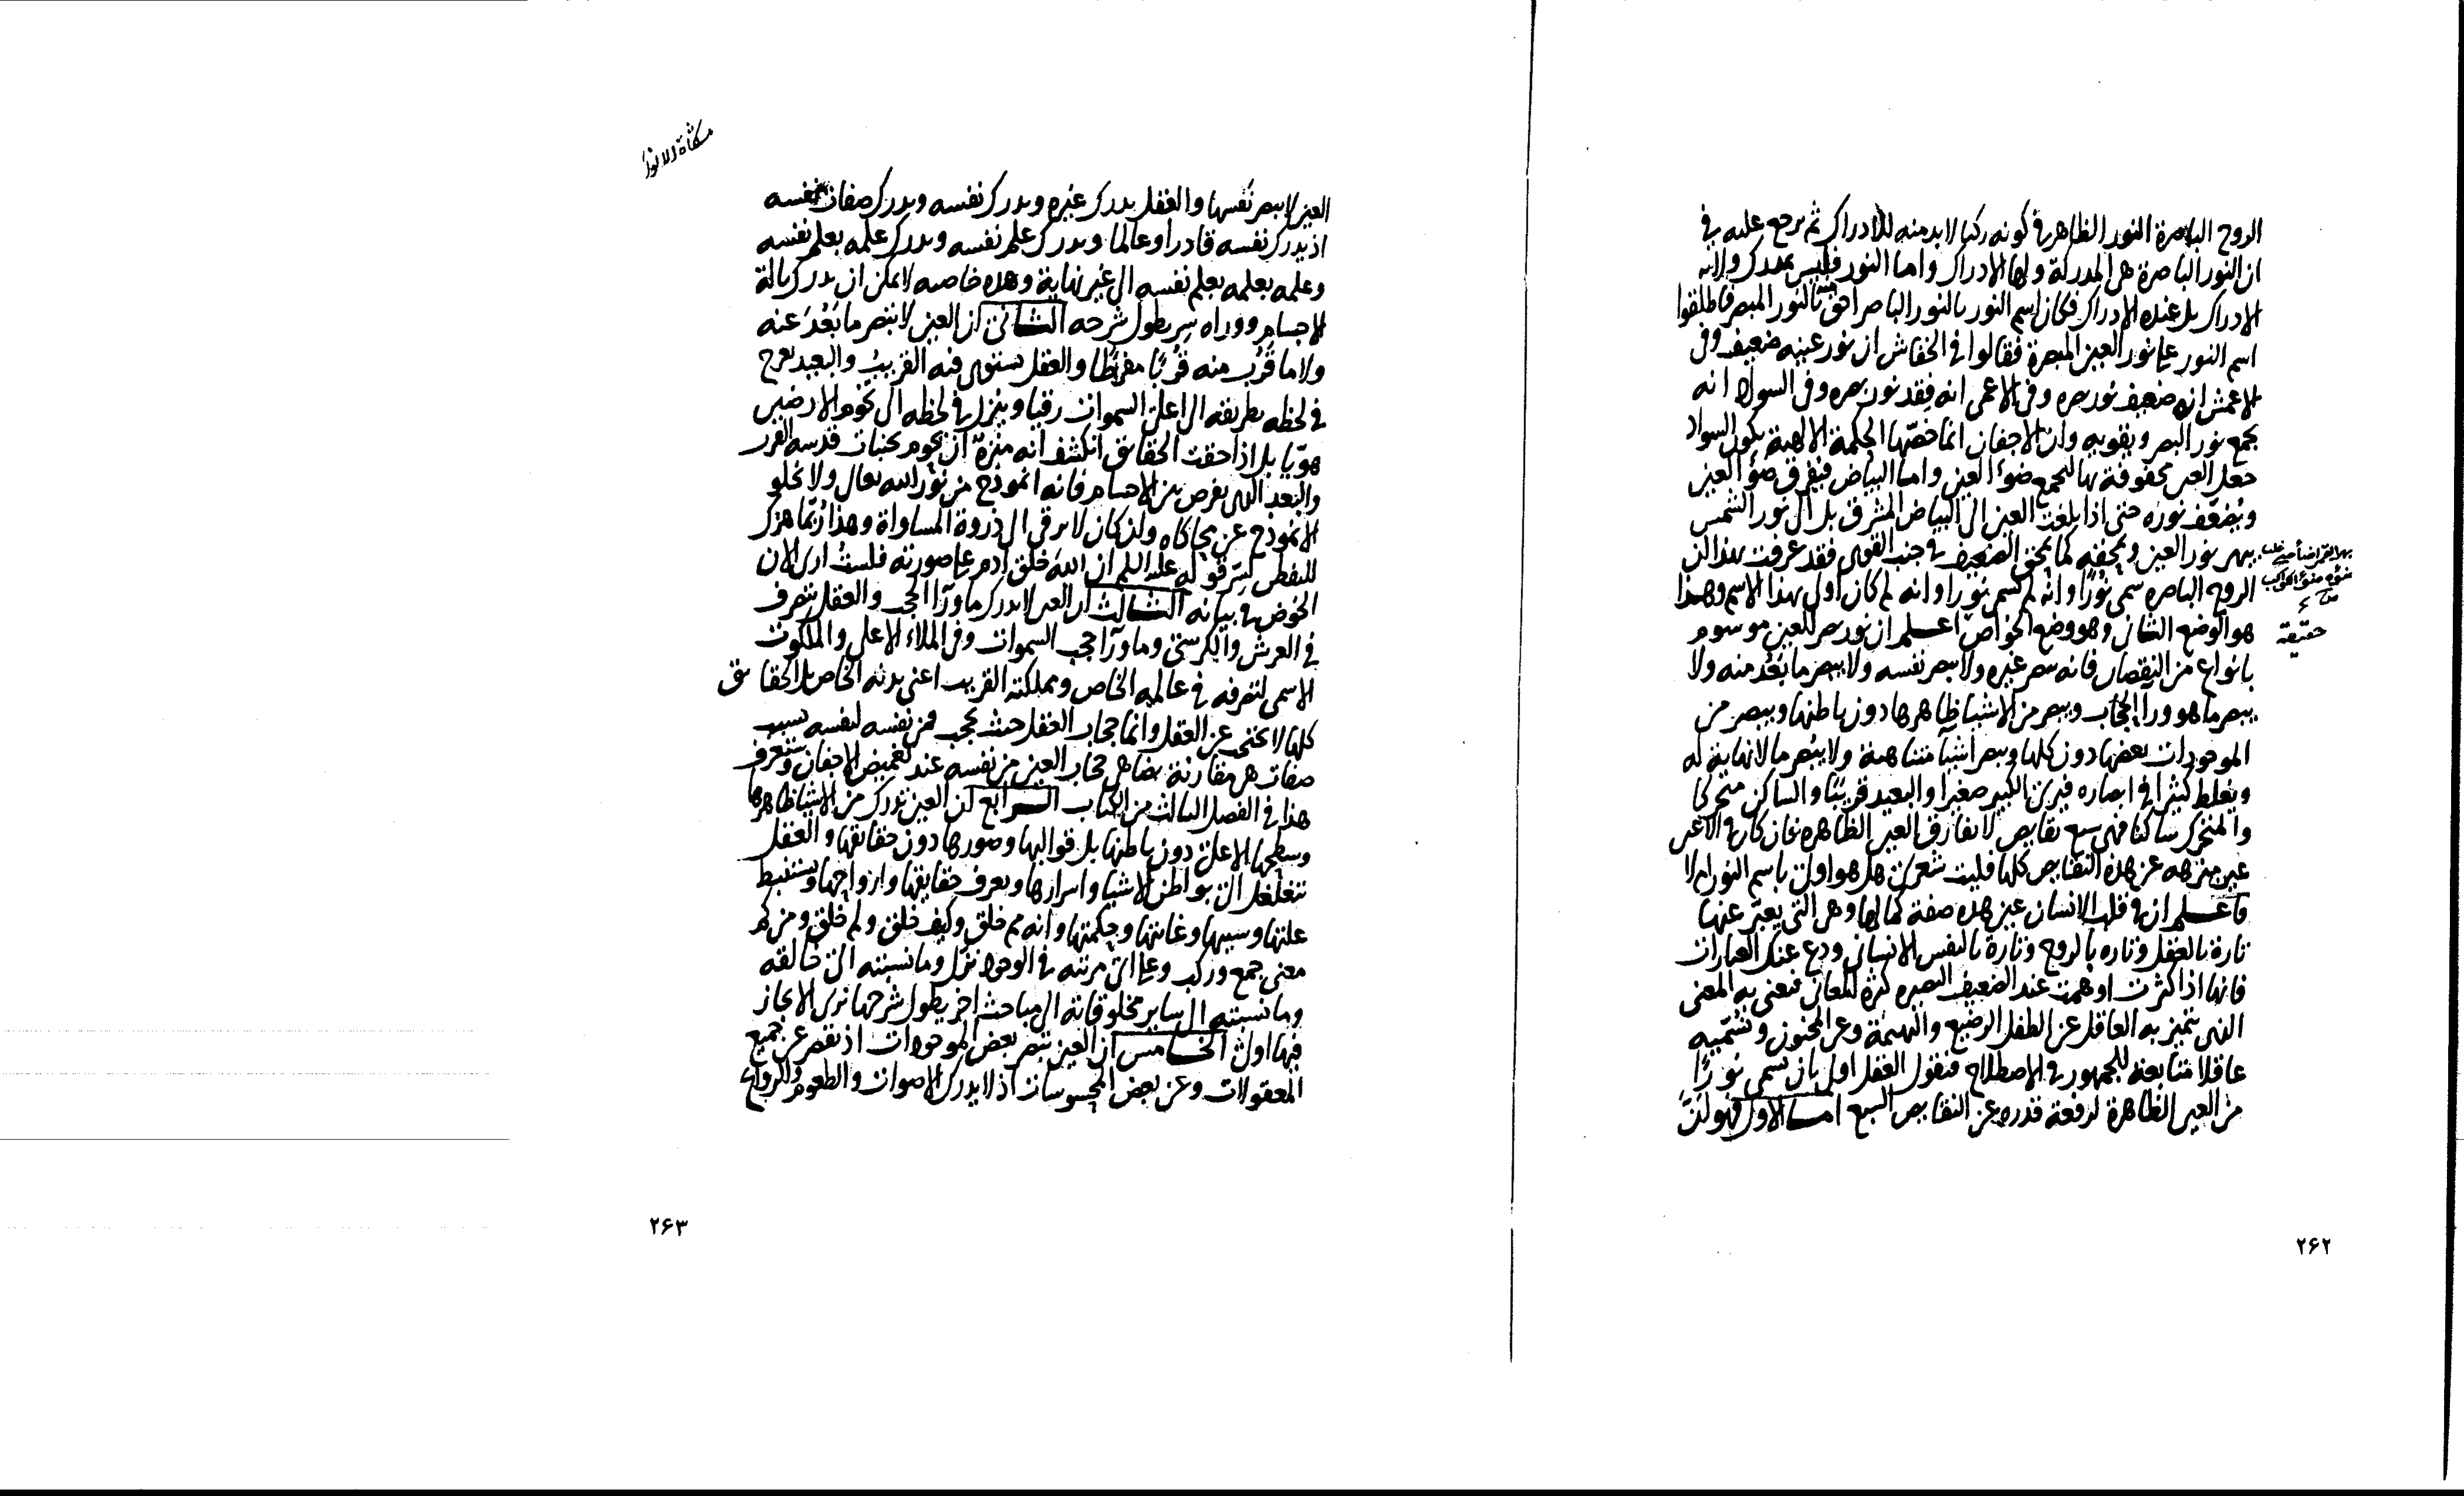 الروح الباصرة النور الظاهر في كونه ركنا لا بد منه للادراك ثم ترجح عليه في
ان النور الباصرة هي المدركة ولها الادراك واما النور فليس بمدرك ولا به
الادراك بل عنده الادراك فكان اسم النور بالنور الباصر احق منه بالنور المبصر فاطلقوا
اسم النور على نور العين المبصرة فقالوا في الخفاش ان نور عينه ضعيف وفي
الاعمش انه ضعيف نور بصره وفي الاعمى انه فقد نور بصره وفي السواد انه
يجمع نور البصر ويقويه وان الاجفان انما خصتها الحكمة الالهية بكون السواد
جعل العين محفوفة بها لتجمع ضوء العين واما البياض فيفرق ضوء العين
ويضعف نوره حتى اذا بلغت العين الى البياض المشرق بل الى نور الشمس
يبهر نور العين ويمحقه كما يمحق الضعيف في جنب القوى فقد عرفت بهذا ان
الروح الباصرة سمى نورا وانه لم سمى نورا وانه لم كان اولى بهذا الاسم وهذا
هو الوضع الثانى وهو وضع الخواص
حقيقة
اعلم ان نور بصر العين موسوم
بانواع من النقصان فانه يبصر غيره ولا يبصر نفسه ولا يبصر ما بعد منه ولا
يبصر ما هو ورا الحجاب ويبصر من الاشيا ظاهرها دون باطنها ويبصر من
الموجودات بعضها دون كلها ويبصر اشيآ متناهية ولا يبصر ما لا نهاية له
ويغلط كثيرا في ابصاره فيرى الكبير صغيرا والبعيد قريبا والساكن متحركا
والمتحرك ساكنا فهى سبع نقايص لا تفارق العين الظاهرة فان كان في الاعين
عين منزهة عن هذه النقايص كلها فليت شعرى هل هو اولى باسم النور ام لا
فاعلم ان في قلب الانسان عين هذه صفة كمالها وهى التى يعبر عنها
تارة بالعقل وتارة بالروح وتارة بالنفس الانسانى ودع عنك العبارات
فانها اذا كثرت اوهمت عند الضعيف البصيره كثرة المعانى فنعنى به المعنى
الذى يتميز به العاقل عن الطفل الرضيع والبهيمة وعن المجنون ونسميه
عاقلا متابعة للجمهور في الاصطلاح فنقول العقل اولى بان يسمى نورا
من العين الظاهرة لرفعة قدره عن النقايص السبع اما الاول فهو ان
٢۶٢
مشكاة الانوار
العين لا تبصر نفسها والعقل يدرك غيره ويدرك نفسه ويدرك صفات نفسه
اذ يدرك نفسه قادرا وعالما ويدرك علم نفسه ويدرك علمه بعلم نفسه
وعلمه بعلمه بعلم نفسه الى غير نهاية وهذه خاصه لا يمكن ان تدرك بالة
الاجسام ووراه سر يطول شرحه الثانى ان العين لا تبصر ما بعد عنه
ولا ما قرب منه قربا مفرطا والعقل يستوى فيه القريب والبعيد يعرج
في لحظه بطريقه الى اعلى السموات رقيا وينزل في لحظه الى تخوم الارضين
هويا بل اذا حقت الحقائق انكشف انه منزه ان تحوم بجنبات قدسه القرب
والبعد الذى يفرض بين الاجسام فانه انموذج من نور الله تعالى ولا يخلو
الانموذج عن محاكاه وان كان لا يرقى الى ذروة المساواة وهذا ربما هزك
للتفطن لسر قوله عليه السلم ان الله خلق ادم على صورته فلست ارى الان
الخوض في بيانه الثالث ان العين لا تدرك ما ورآ الحجب والعقل يتصرف
في العرش والكرسى وما ورآ حجب السموات وفي الملاء الاعلى والملكوت
الاسمى لتصرفه في عالمه الخاص ومملكته القريب اعنى بدنه الخاص بل الحقائق
كلها لا تخفى عن العقل وانما حجاب العقل حيث يحجب فمن نفسه لنفسه بسبب
صفات هى مقارنة يضاهى حجاب العين من نفسه عند تغميض الاجفان وستعرف
هذا في الفصل الثالث من الكتاب الرابع ان العين تدرك من الاشيا ظاهرها
وسطحها الاعلى دون باطنها بل قوالبها وصورها دون حقائقها والعقل
يتغلغل الى بواطن الاشيا واسرارها ويعرف حقايقها وارواحها ويستنبط
علتها وسببها وغايتها وحكمتها وانه مم خلق وكيف خلق ولم خلق ومن كم
معنى جمع وركب وعلى اى مرتبه في الوجود نزل وما نسبته الى خالقه
وما نسبته الى ساير مخلوقاته الى مباحث اخر يطول شرحها نرى الايجاز
فيها اولى الخامس ان العين تبصر بعض الموجودات اذ تقصر عن جميع
المعقولات وعن بعض المحسوسات اذ لا يدرك الاصوات والطعوم والروايح
٢۶٣